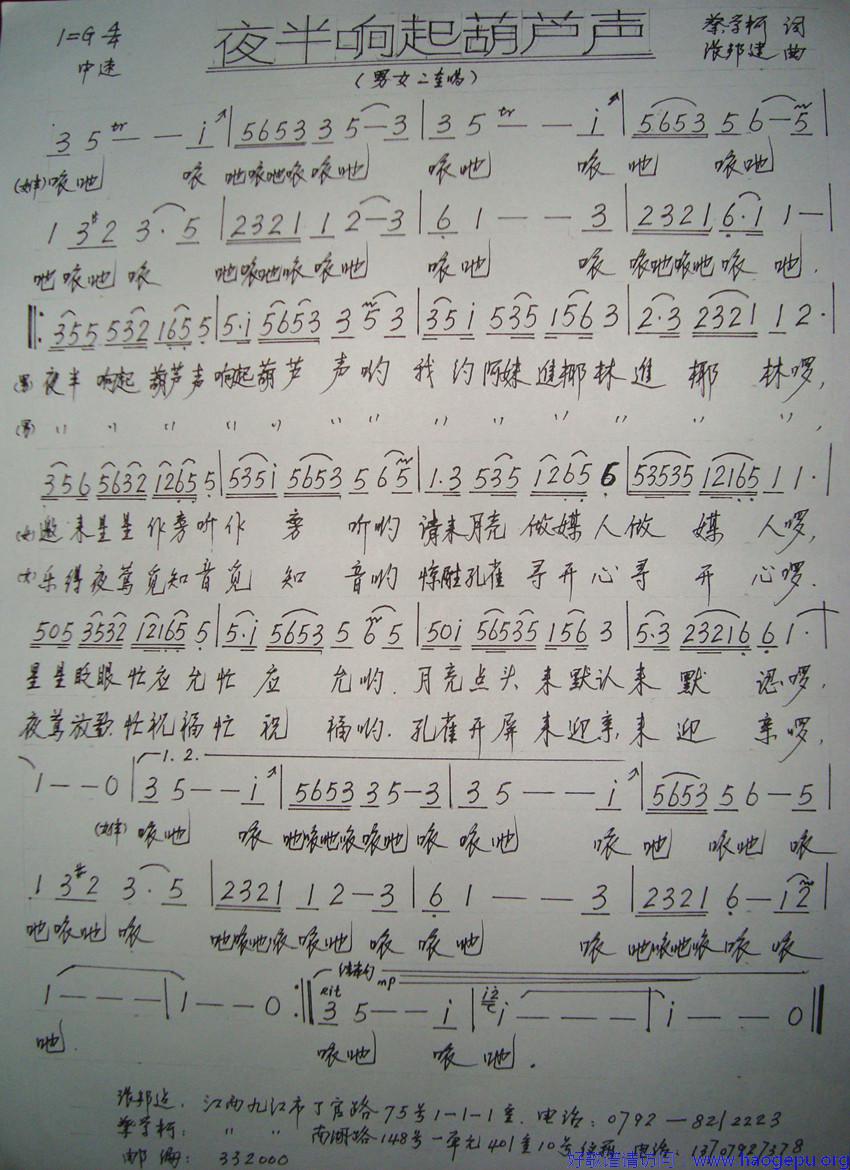 1=G 4/4
夜半响起葫芦声
蔡学柯 词
中速
张邦建 曲
(男女二重唱)
3 5 tr — — i | 5653 3 5 — 3 | 3 5 tr — — i | 5653 5 6 — 5 |
(女伴) 哝吔 哝 吔哝吔哝 哝吔 哝吔 哝 吔 哝吔
1 3 #2 3 · 5 | 2321 1 2 — 3 | 6 1 — — 3 | 2321 6·1 1 — |
吔哝吔 哝 吔哝吔哝 哝吔 哝吔 哝 哝吔哝吔 哝 吔.
‖: 355 532 165 5 | 5·i 5653 3 5 3 | 35i 535 156 3 | 2·3 2321 1 2 · |
(男) 夜半 响起 葫芦声 响起葫芦 声哟 我约阿妹进椰林进 椰 林啰,
(男) 〃 〃 〃 〃 〃 〃 〃 〃 〃 〃 〃 〃,
356 5632 1265 5 | 535i 5653 5 6 5 | 1·3 535 1265 6 | 53535 12165 1 1 · |
(女) 邀来星星作旁听作 旁 听哟 请来月亮 做媒人做 媒 人啰,
(女) 乐得夜莺觅知音觅 知 音哟 惊醒孔雀 寻开心寻 开 心啰.
505 3532 12165 5 | 5·i 5653 5 6 5 | 50i 56535 156 3 | 5·3 23216 6 1 ·
星星眨眼忙应允忙 应 允哟. 月亮点头 来默认来 默 认啰,
夜莺放歌忙祝福忙 祝 福哟. 孔雀开屏 来迎亲来 迎 亲啰,
1 — — 0 | 1.2. 3 5 — — i | 5653 3 5 — 3 | 3 5 — — i | 5653 5 6 — 5 |
(女伴) 哝吔 哝 吔哝吔哝哝吔 哝 哝吔 哝 吔 哝吔 哝
1 3 #2 3 · 5 | 2321 1 2 — 3 | 6 1 — — 3 | 2321 6 — i2 |
吔哝吔 哝 吔哝吔哝 哝吔 哝 哝吔 哝 吔哝吔哝 哝 哝
结束句
rit mp
1 — — — | 1 — — 0 :‖ 3 5 — — i | i — — — | i — — 0 ‖
吔. 哝吔 哝 吔.
张邦建: 江西九江市丁官路75号1-1-1室. 电话: 0792—8212223
蔡学柯: 〃 〃 南湖路148号一单元401室10号信箱 电话: 13707927378
邮编: 332000
好歌谱请访问 www.haogepu.org